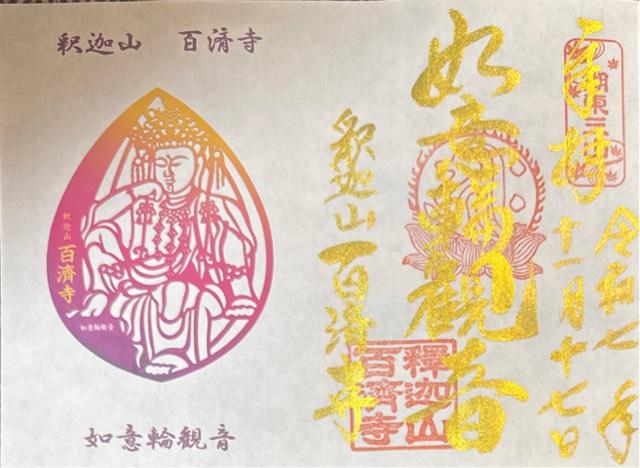 奉拝
湖東三山
令和七年
十一月十七日
如意輪観音
釈迦山百済寺
釋迦山
百濟寺
釈迦山 百済寺
釈迦山
百済寺
如意輪観音
如意輪観音